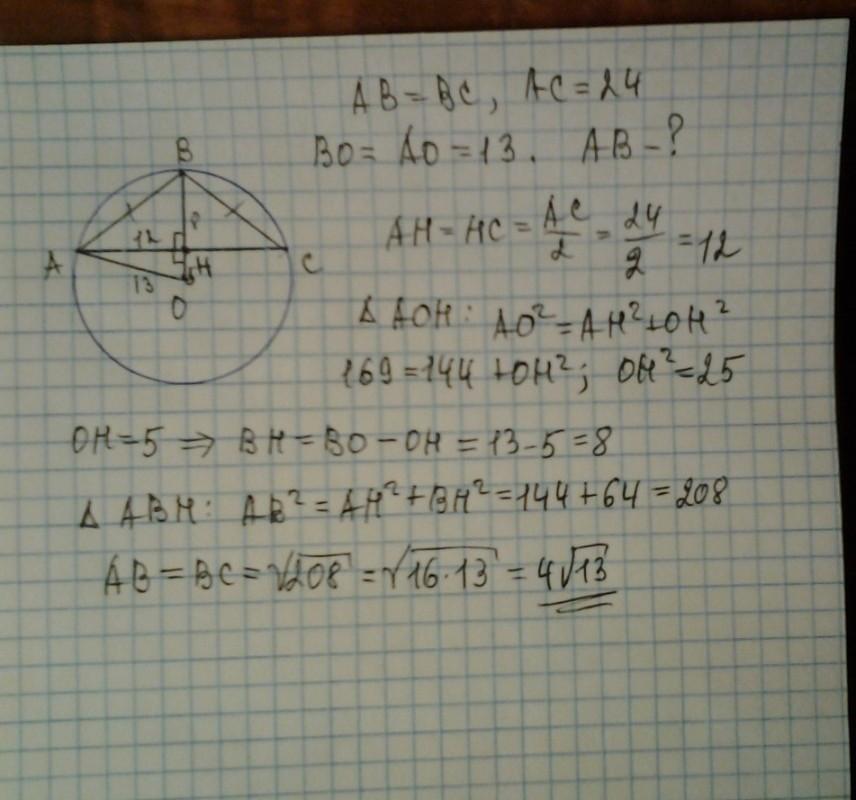 AB = BC, AC = 24
BO = AO = 13. AB - ?
B
8
12
A
H
C
13
5
O
AH = HC = AC/2 = 24/2 = 12
Δ AOH: AO² = AH² + OH²
169 = 144 + OH²; OH² = 25
OH = 5 ⇒ BH = BO - OH = 13 - 5 = 8
Δ ABH: AB² = AH² + BH² = 144 + 64 = 208
AB = BC = √208 = √16·13 = 4√13